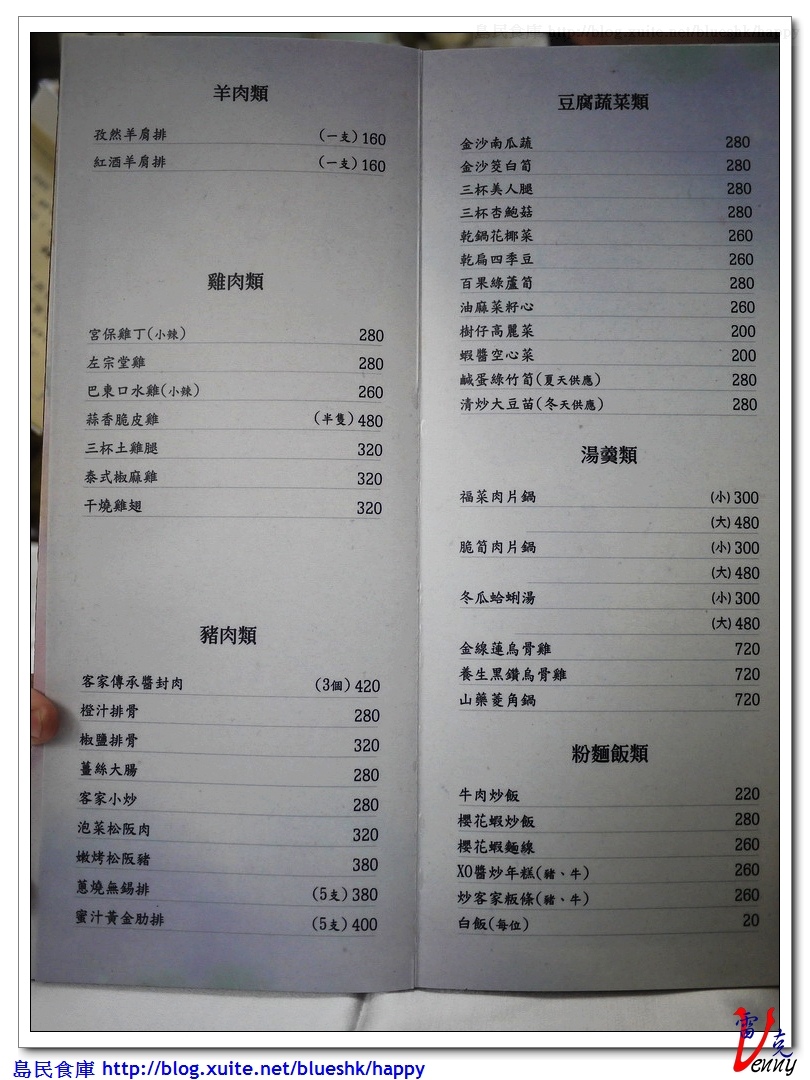 島民食庫 http://blog.xuite.net/blueshk/happy
羊肉類
孜然羊肩排 (一支)160
紅酒羊肩排 (一支)160
雞肉類
宮保雞丁(小辣) 280
左宗堂雞 280
巴東口水雞(小辣) 260
蒜香脆皮雞 (半隻)480
三杯土雞腿 320
泰式椒麻雞 320
干燒雞翅 320
豬肉類
客家傳承醬封肉 (3個)420
橙汁排骨 280
椒鹽排骨 320
薑絲大腸 280
客家小炒 280
泡菜松阪肉 320
嫩烤松阪豬 380
蔥燒無錫排 (5支)380
蜜汁黃金肋排 (5支)400
豆腐蔬菜類
金沙南瓜蔬 280
金沙筊白筍 280
三杯美人腿 280
三杯杏鮑菇 280
乾鍋花椰菜 260
乾扁四季豆 260
百果綠蘆筍 280
油麻菜籽心 260
樹仔高麗菜 200
蝦醬空心菜 200
鹹蛋綠竹筍(夏天供應) 280
清炒大豆苗(冬天供應) 280
湯羹類
福菜肉片鍋 (小)300
(大)480
脆筍肉片鍋 (小)300
(大)480
冬瓜蛤蜊湯 (小)300
(大)480
金線蓮烏骨雞 720
養生黑鑽烏骨雞 720
山藥菱角鍋 720
粉麵飯類
牛肉炒飯 220
櫻花蝦炒飯 280
櫻花蝦麵線 260
XO醬炒年糕(豬、牛) 260
炒客家粄條(豬、牛) 260
白飯(每位) 20
雷克
Venny
島民食庫 http://blog.xuite.net/blueshk/happy